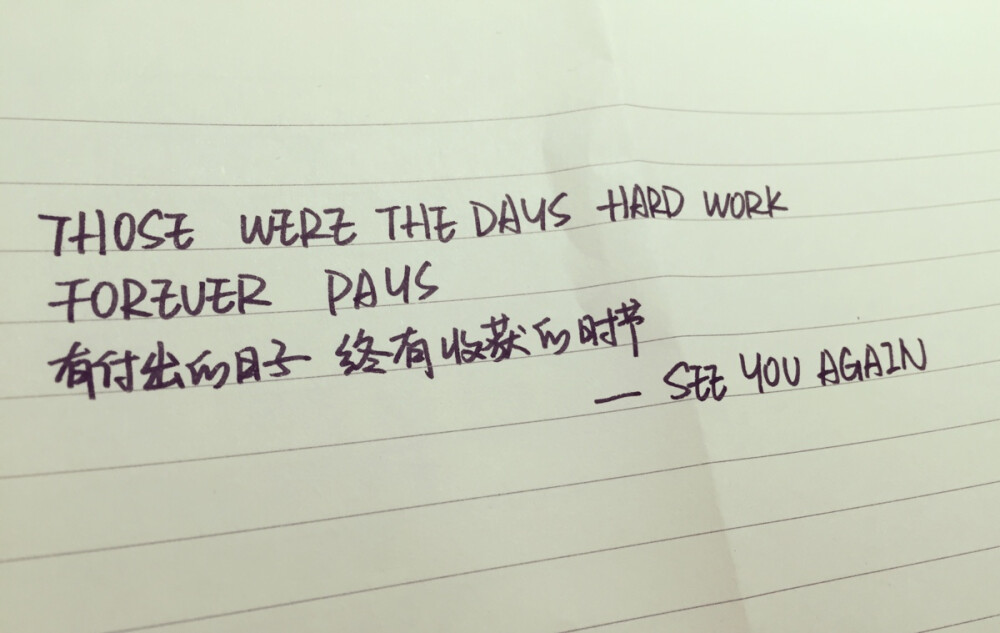 THOSE WERE THE DAYS HARD WORK
FOREVER PAYS
有付出的日子 终有收获的时节
— SEE YOU AGAIN